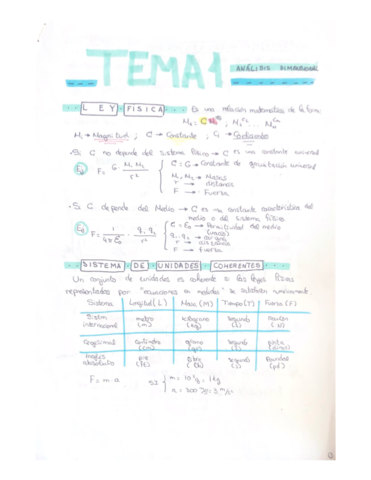 TEMA 1
ANÁLISIS DIMENSIONAL
LEY FISICA → Es una relación matemática de la forma:
M₁ → Magnitud; C → Constante;
• Si C no depende del sistema físico → C es una constante universal
Ej F = G · M₁ M₂ / r²
C = G → Constante de gravitación universal
M₁, M₂ → Masas
r → distancia
F → Fuerza
• Si C depende del Medio → C es una constante característica del
medio o del sistema físico
Ej F = 1 / 4π ε₀ · q₁ q₂ / r²
C = ε₀ → Permitividad del medio
(vacío)
q₁, q₂ → cargas
r → distancia
F → fuerza
SISTEMA DE UNIDADES COHERENTES
Un conjunto de unidades es coherente si las leyes físicas
representadas por "ecuaciones en medidas" se satisfacen
Sistema Longitud (L) Masa (M) Tiempo (T) Fuerza (F)
internacional metro (m) kilogramo (kg) segundo (s) newton (N)
Cegesimal centímetro (cm) gramo (gr) segundo (s) dina
Inglés absoluto pie (ft) libra segundo (s)
F = m · a